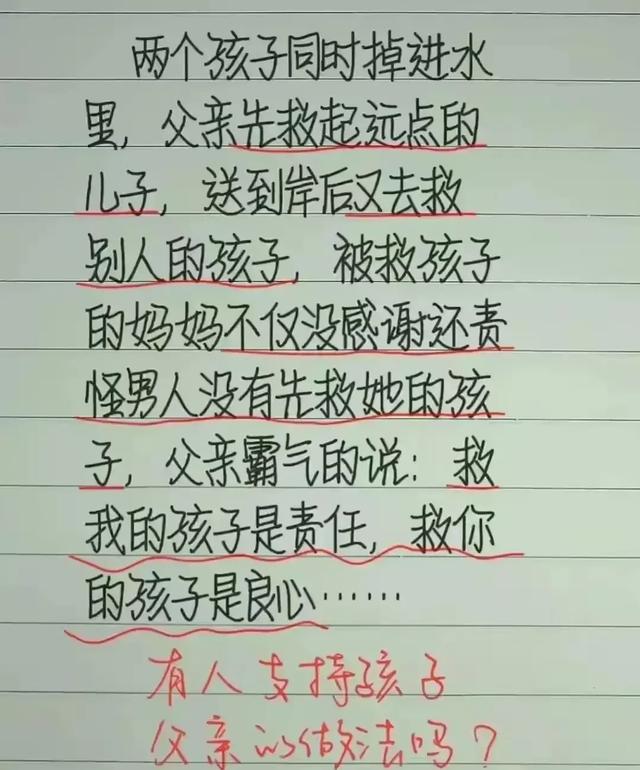 两个孩子同时掉进水
里，父亲先救起远点的
儿子，送到岸后又去救
别人的孩子，被救孩子
的妈妈不仅没感谢还责
怪男人没有先救她的孩
子，父亲霸气的说：救
我的孩子是责任，救你
的孩子是良心……
有人支持孩子
父亲的做法吗？